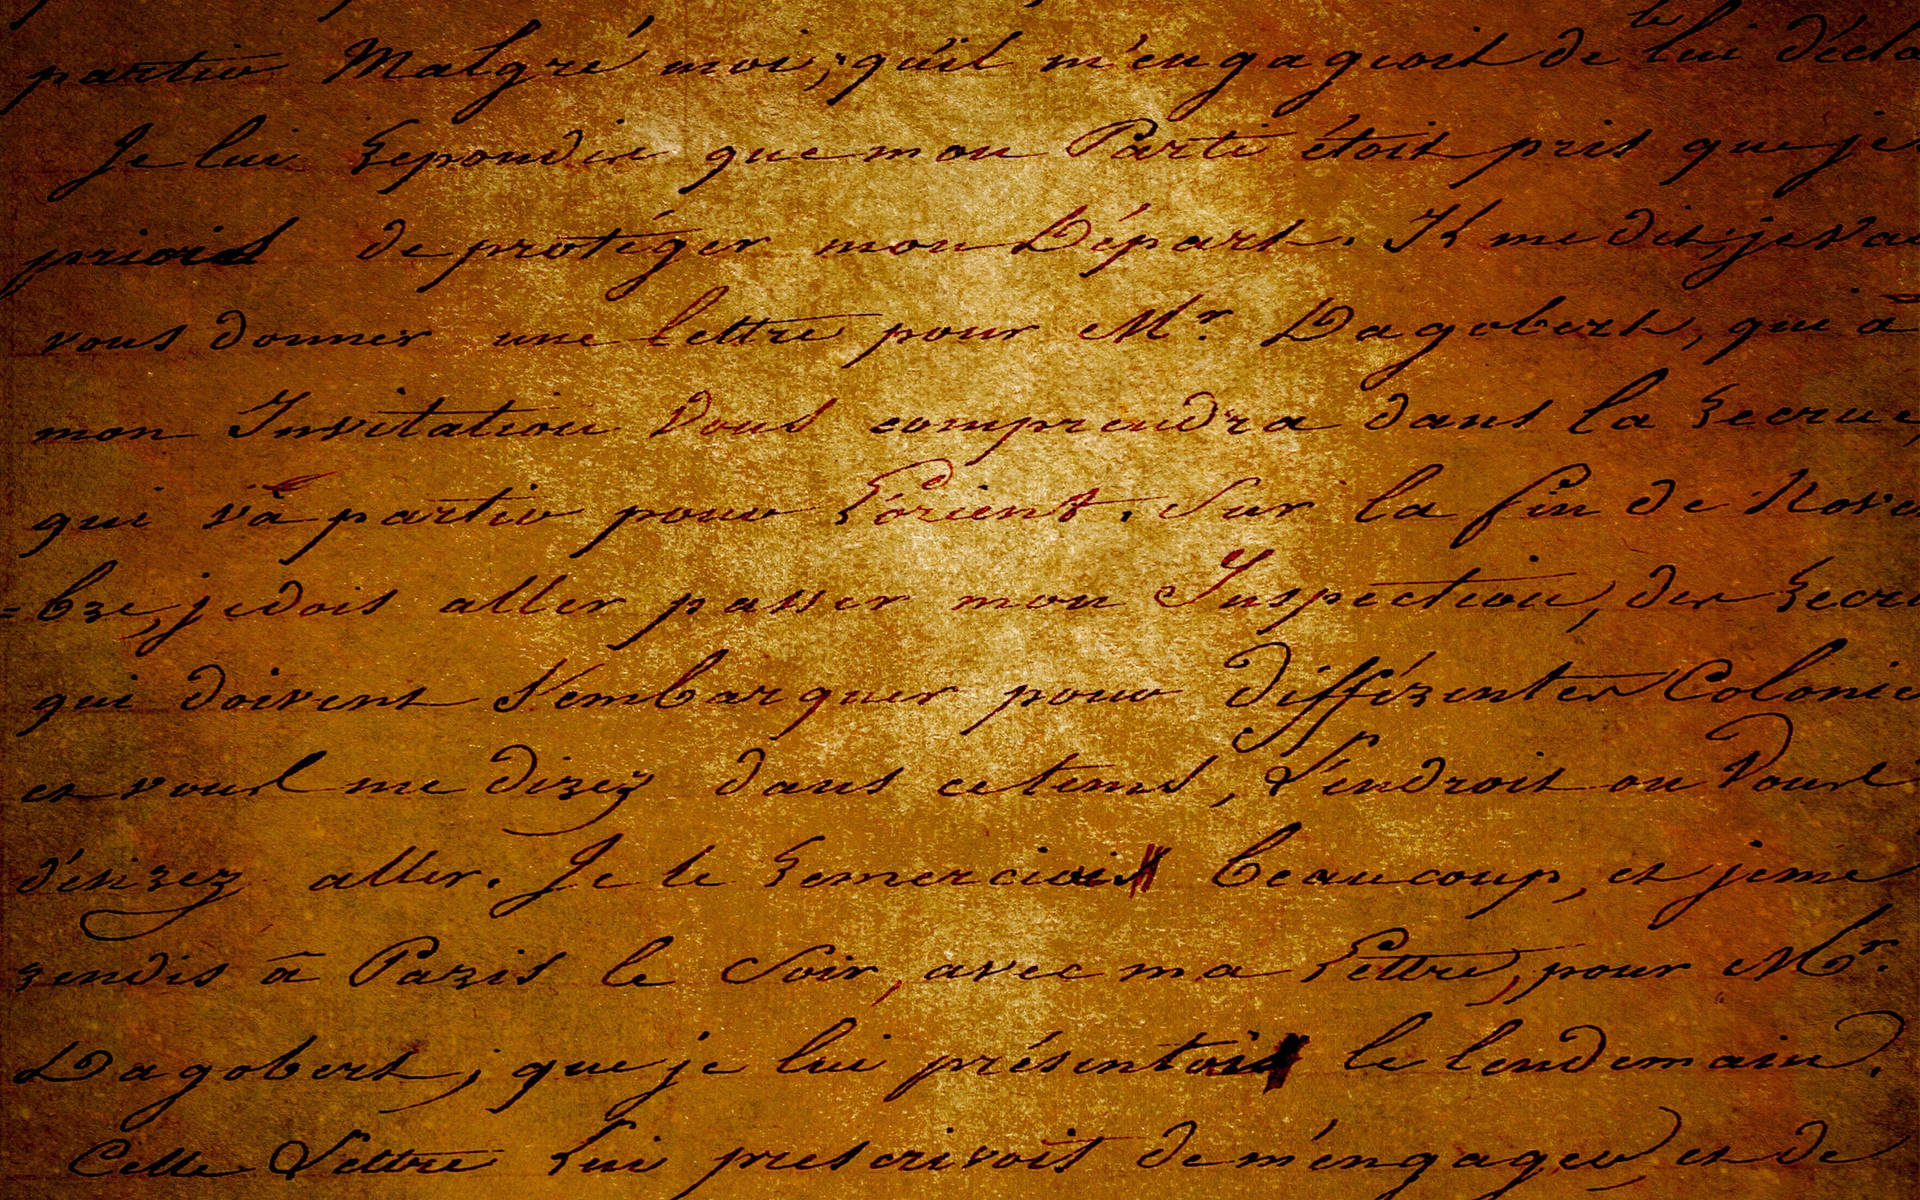 partir Malgré moi; qu'il m'engageoit de le lui décla
Je lui Repondis que mon Parti étoit pris que je
priois de protéger mon Départ. Il me dit: je va
vous donner une Lettre pour Mr. Dagobert, qui à
mon Invitation Vous comprendra dans la Recrue,
qui va partir pour L'orient. Sur la fin de Nove
=bre, je dois aller passer mon Inspection, des Recru
qui doivent S'embarquer pour différentes Colonie
et vous me direz dans ce tems, L'endroit ou Vous
désirez aller. Je le Remerciois beaucoup, et je me
rendis à Paris le Soir, avec ma Lettre, pour Mr.
Dagobert, que je lui présentois le lendemain.
Cette Lettre Lui prescrivoit de m'engager, et de